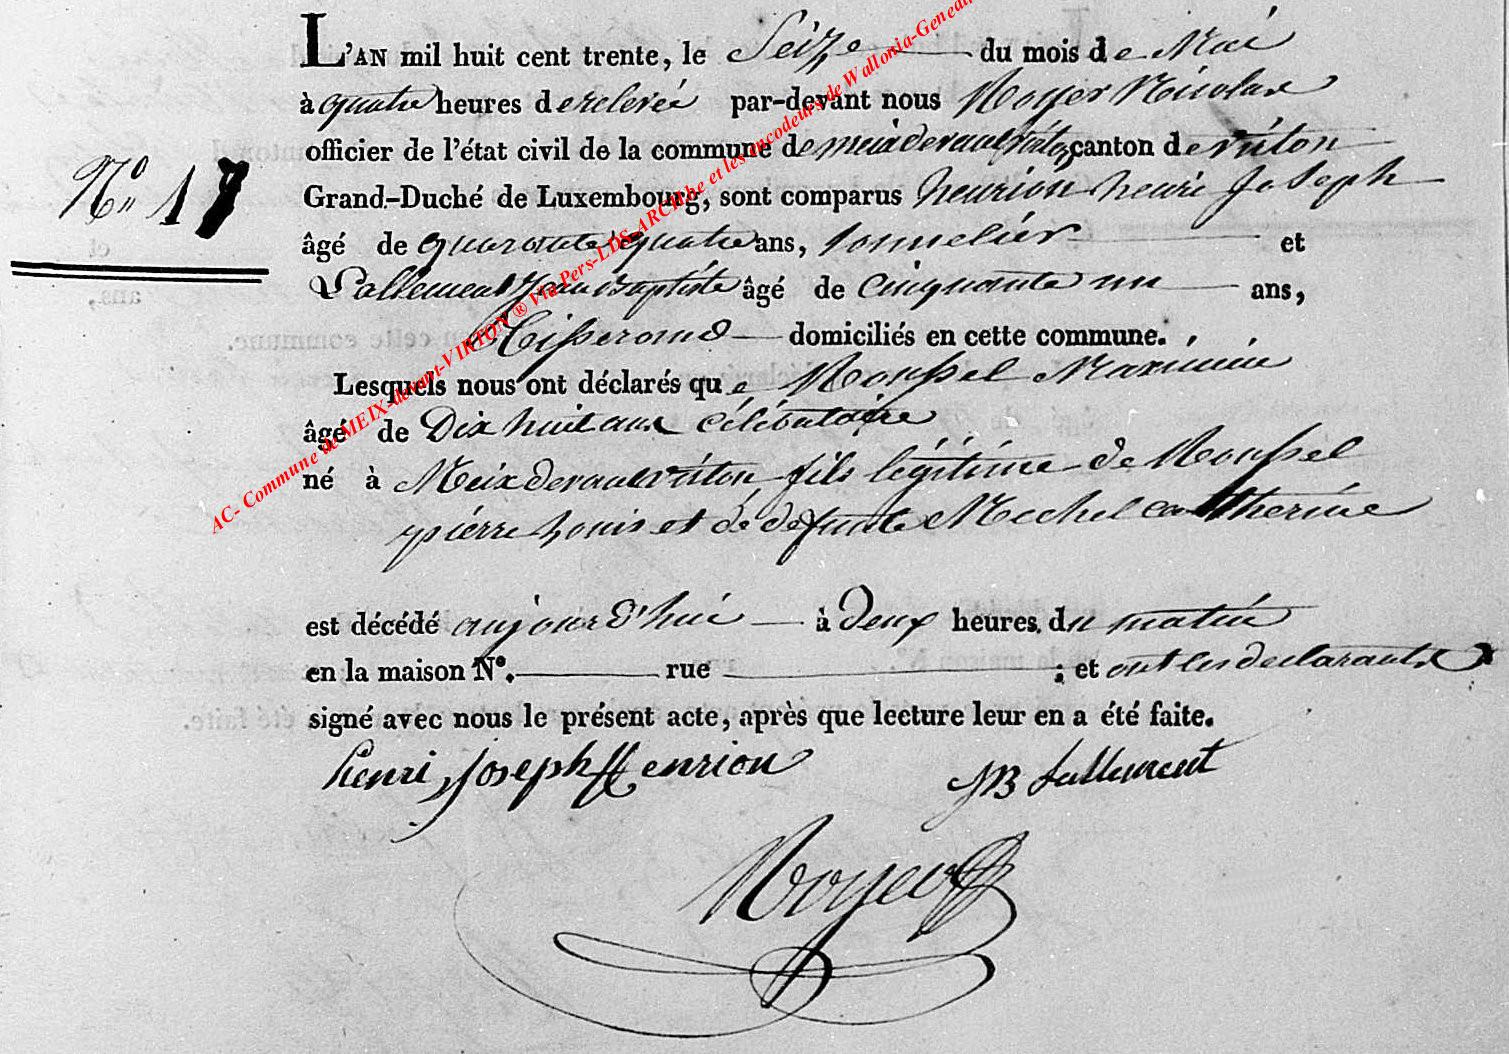 L'AN mil huit cent trente, le Seize du mois de Mai
à quatre heures de relevée par-devant nous Noyer Nicolas
officier de l'état civil de la commune de meix devant virton, canton de virton
N° 17
Grand-Duché de Luxembourg, sont comparus henrion henri Joseph
âgé de quarante quatre ans, tonnelier et
Lallement Jean Baptiste âgé de cinquante un ans,
Tisserand domiciliés en cette commune.
Lesquels nous ont déclarés que Roussel Maximin
âgé de Dix huit ans célébataire
né à Meix devant virton fils légitime de Roussel
pierre Louis et de défunte Michel catherine
est décédé aujourd'hui à Deux heures du matin
en la maison N°. rue ; et ont les declarants
signé avec nous le présent acte, après que lecture leur en a été faite.
henri Joseph Henrion JB Lallement
Noyer
AC- Commune de MEIX-devant-VIRTON ® Via Pers-LDS-ARCHbe et les encodeurs de Wallonia-Geneal